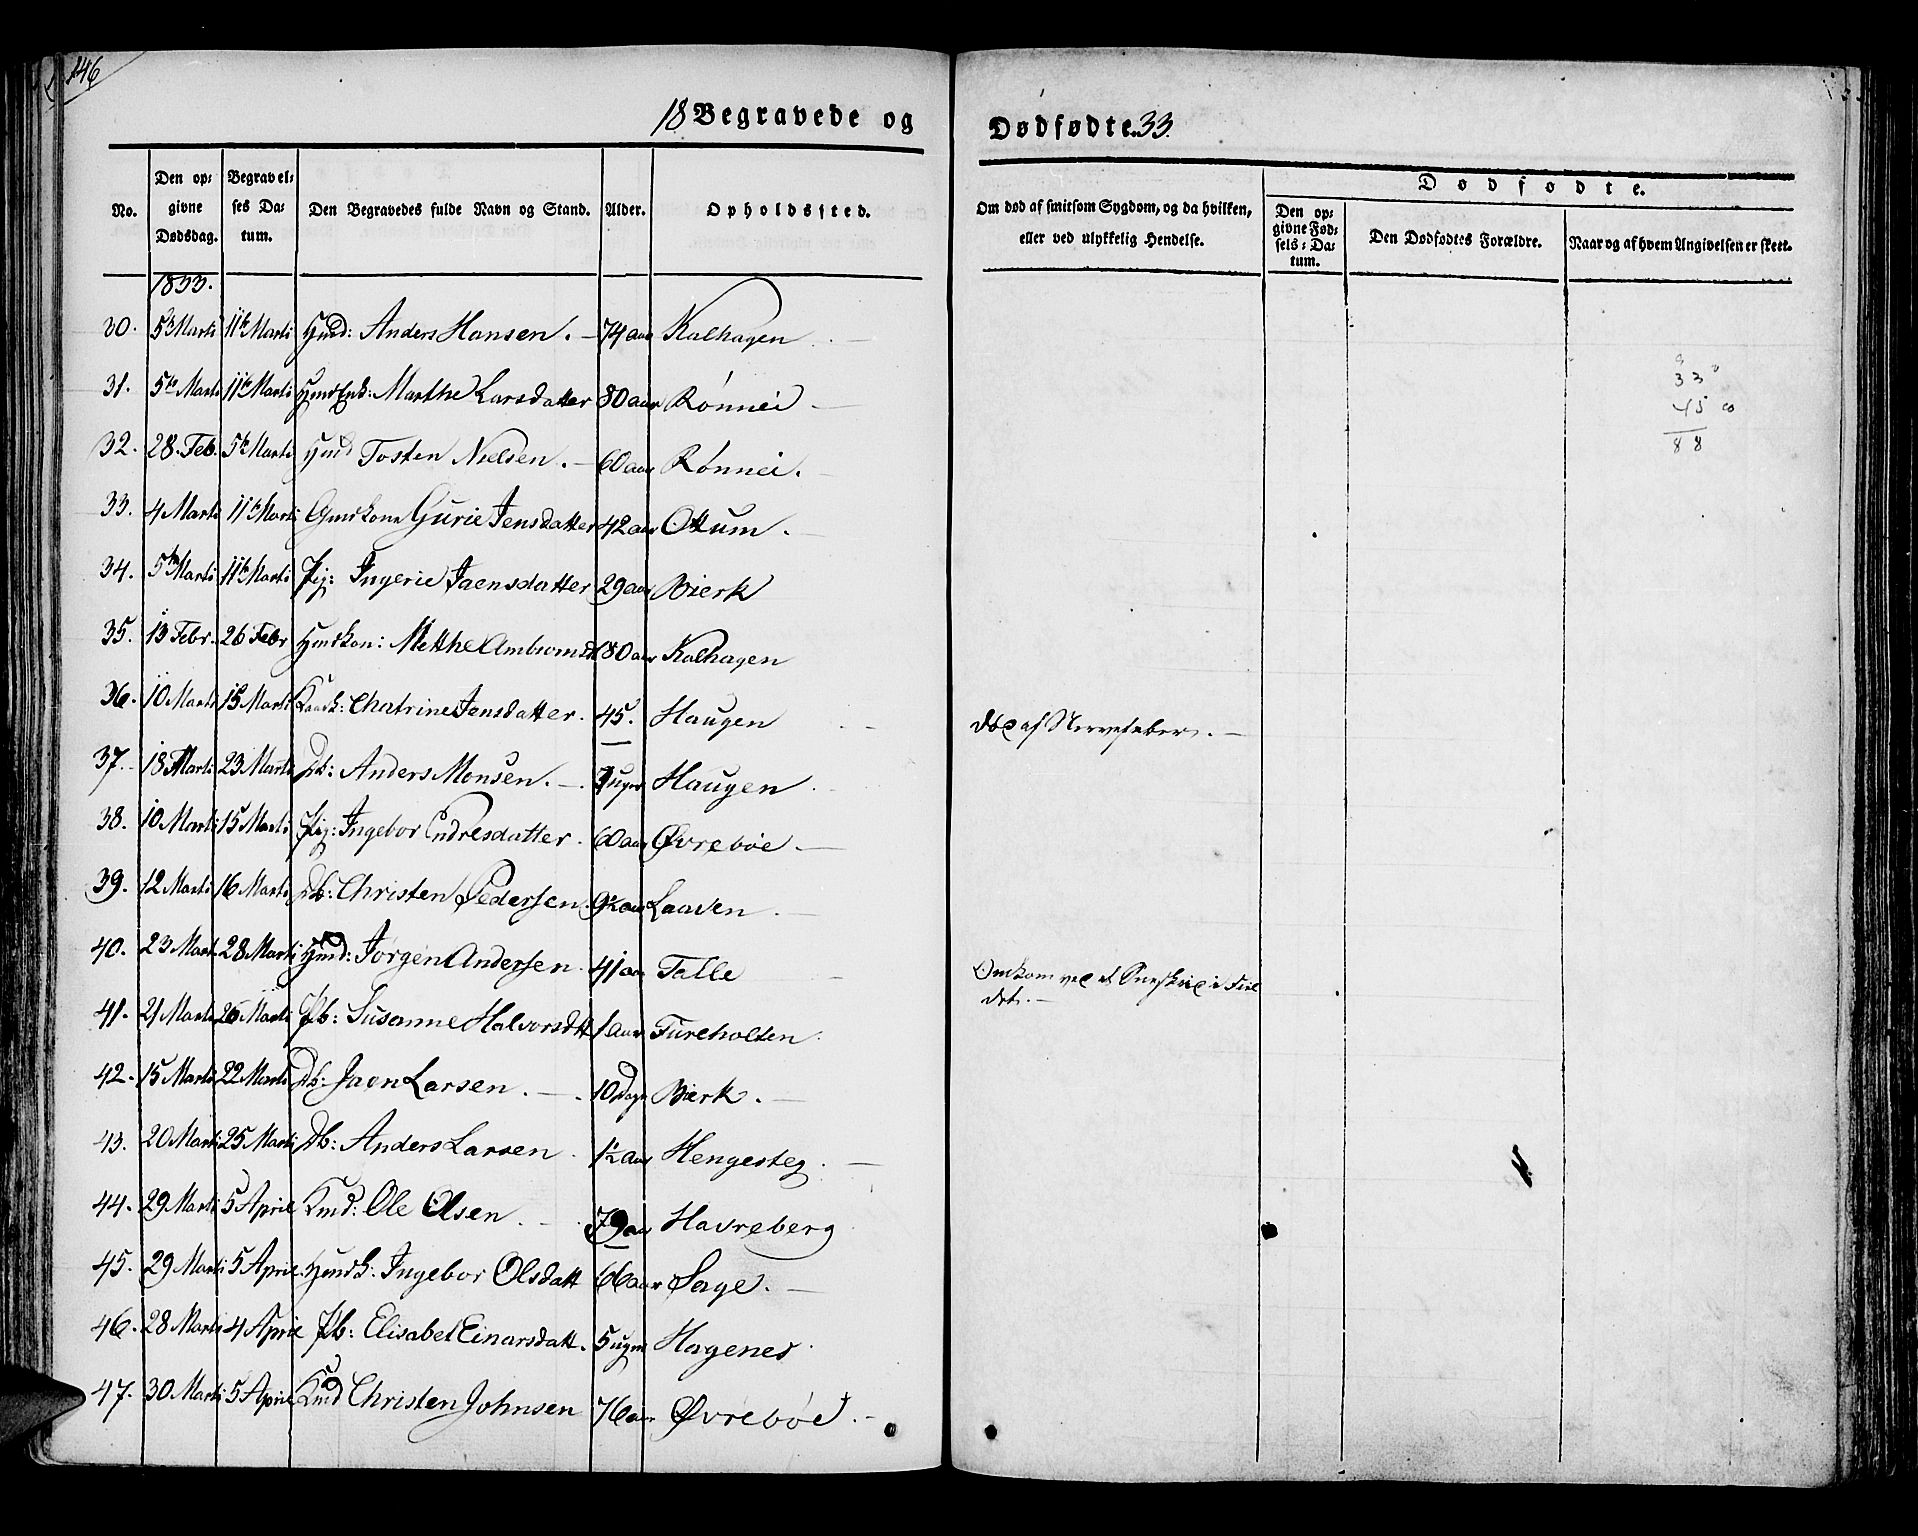 146
18 Begravede og Dødfødte. 33.
No.
Den opgivne Dødsdag.
Begravelses Datum.
Den Begravedes fulde Navn og Stand.
Alder.
Opholdssted.
Om død af smitsom Sygdom, og da hvilken, eller ved ulykkelig Hendelse.
Dødfødte.
Den opgivne Fødsels-Datum.
Den Dødfødtes Forældre.
Naar og af hvem Angivelsen er skeet.
1833.
30. 5te Marti 11te Marti Hmd: Anders Hansen. 74 aar Kalhagen
31. 5te Marti 11te Marti HmdEnk: Marthe Larsdatter 80 aar Rønnei
32. 28. Feb. 5te Marti Hmd Tosten Nielsen. 60 aar Rønnei.
33. 4 Marti 11te Marti Gmskone Gurie Jensdatter 42 aar Ottum.
34. 5te Marti 11te Marti Pij: Ingerie Jaensdatter 29 aar Bierk
35. 13 Febr. 26 Febr Hmskon: Metthe 80 aar Kalhagen
36. 10 Marti 15 Marti Chatrine Jensdatter. 45. Haugen
Døe af Nervefeber.
37. 18 Marti 23 Marti Db: Anders Monsen. uger Haugen
38. 10 Marti 15 Marti Pij: Ingebor Endresdatter. 60 aar Øvrebøe
39. 12 Marti 16 Marti Db: Christen Pedersen. 9½ aar Laaven
40. 23 Mart. 28 Marti Hmd: Jørgen Andersen. 41 aar Talle
Omkom ved et i Fiel
det.
41. 21 Marti 26 Marti Pb: Susanne Halvorsdtt 1 aar Tureholten
42. 15 Marti 22 Marti Db: Jaen Larsen. 10 Dage Bierk.
43. 20 Marti 25 Marti Db: Anders Larsen 1½ aar Hengesteg.
44. 29 Marti 5 April Kmd: Ole Olsen. 79 aar Havreberg
45. 29 Marti 5 April Hmsk: Ingebor Olsdatt 66 aar Sage.
46. 28 Marti 4 April Pb: Elisabet Einarsdatt. 5 uger Hagenes
47. 30 Marti 5 April Kmd Christen Johnsen 76 aar Øvrebøe.
33
45
88